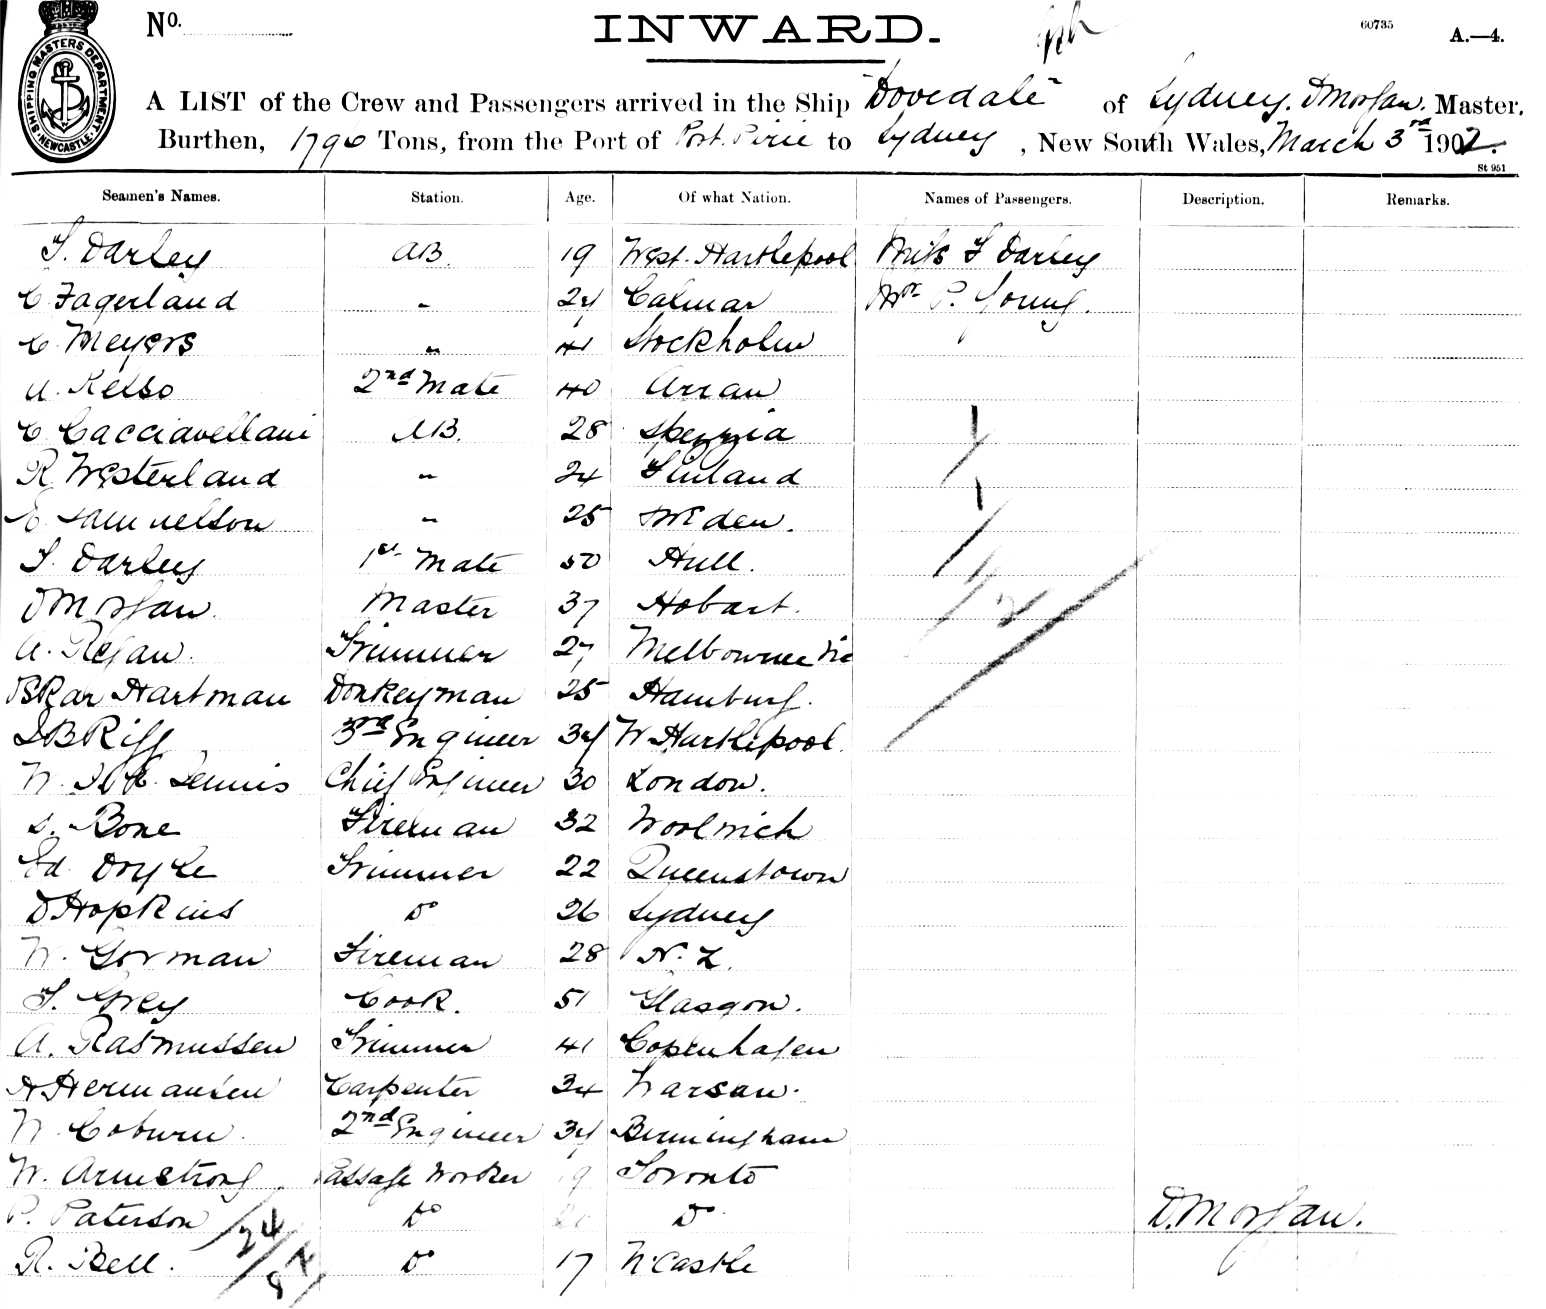 No.
INWARD.
60735
A.—4.
SHIPPING MASTERS DEPARTMENT NEWCASTLE
A LIST of the Crew and Passengers arrived in the Ship "Dovedale" of Sydney. D Morgan. Master,
Burthen, 1796 Tons, from the Port of Port. Pirie to Sydney, New South Wales, March 3rd 1902.
St 951
Seamen's Names. Station. Age. Of what Nation. Names of Passengers. Description. Remarks.
T. Darley AB. 19 West. Hartlepool F Darley
C. Fagerland " 24 Calmar Mr P. Young.
C. Meyers " 41 Stockholm
A. Kelso 2nd Mate 40 Arran
C. Cacciavellani AB. 28 Spezzia
R Westerland " 24 Finland
E Samuelson " 25 Sweden.
T. Darley 1st Mate 50 Hull.
D Morgan. Master 37 Hobart.
A. Regan. Trimmer 27 Melbourne Vic
Oskar Hartman Donkeyman 25 Hamburg.
Riff 3rd Engineer 34 W Hartlepool.
W. Dennis Chief Engineer 30 London.
S. Bone Fireman 32 Woolwich
Ed Doyle Trimmer 22 Queenstown
D Hopkins Do 26 Sydney
W. Gorman Fireman 28 N. Z.
T. Grey Cook. 51 Glasgow.
A. Rasmussen Trimmer 41 Copenhagen
H Hermansen Carpenter 34 Warsaw.
W. Coburn 2nd Engineer 34 Birmingham
W. Armstrong Passage Worker 19 Toronto
P. Paterson Do 20 Do
D. Morgan.
R. Bell. Do 17 N'Castle
24/8